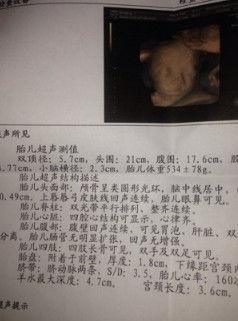 声所见
胎儿超声测值
双顶径:5.7cm,头围:21cm,腹围:17.6cm,股
4.77cm,小脑横径:2.3cm,胎儿体重534±78g。
胎儿超声结构描述
胎儿头面部:颅骨呈类圆形光环,脑中线居中,
0.49cm,上唇唇弓皮肤线回声连续,胎儿眼鼻可见。
胎儿脊柱:双光带平行排列、整齐连续。
胎儿心脏:四腔心结构可显示。心律齐。
胎儿腹部:腹壁回声连续,可见胃泡、肝脏、双
分离。胎儿肠管无明显扩张,回声无增强。
胎儿四肢:四肢长骨可见,双手及双足可见。
胎盘:附着于前壁,厚度:1.8cm,下缘距宫颈内
脐带:脐动脉两条,S/D:3.5,胎儿心率:160
羊水最大深度:4.7cm, 宫颈长度:3.6cm,
声提示